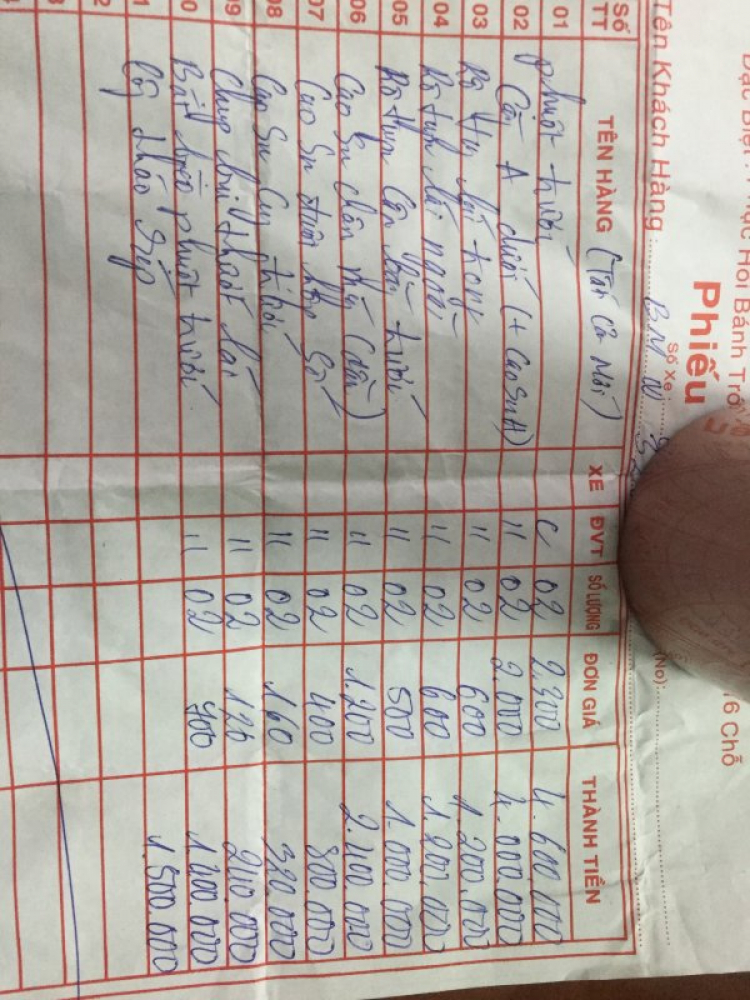 Đặc Biệt : Phục Hồi Bánh Trớ
16 Chỗ
Phiếu
Số Xe
(No):
Tên Khách Hàng BMW
SỐ TT TÊN HÀNG (Tất cả Mới) XE ĐVT SỐ LƯỢNG ĐƠN GIÁ THÀNH TIỀN
01 phuột trước C 02 2.300 4.600.000
02 Càng A dưới (+ Cao Su A) 11 02 2.000 4.000.000
03 Rô tuyn lái trong 11 02 600 1.200.000
04 Rô tuyn lái ngoài 11 02 600 1.200.000
05 Rô tuyn cân bằng trước 11 02 500 1.000.000
06 Cao Su chân máy (dầu) 11 02 1.200 2.400.000
07 Cao Su đuôi hộp số 11 02 400 800.000
08 Cao Su trước 11 02 160 320.000
09 Chụp bụi thước lái 11 02 120 240.000
0 phuột trước 11 02 700 1.400.000
1 Công tháo ráp 1.500.000
2
3